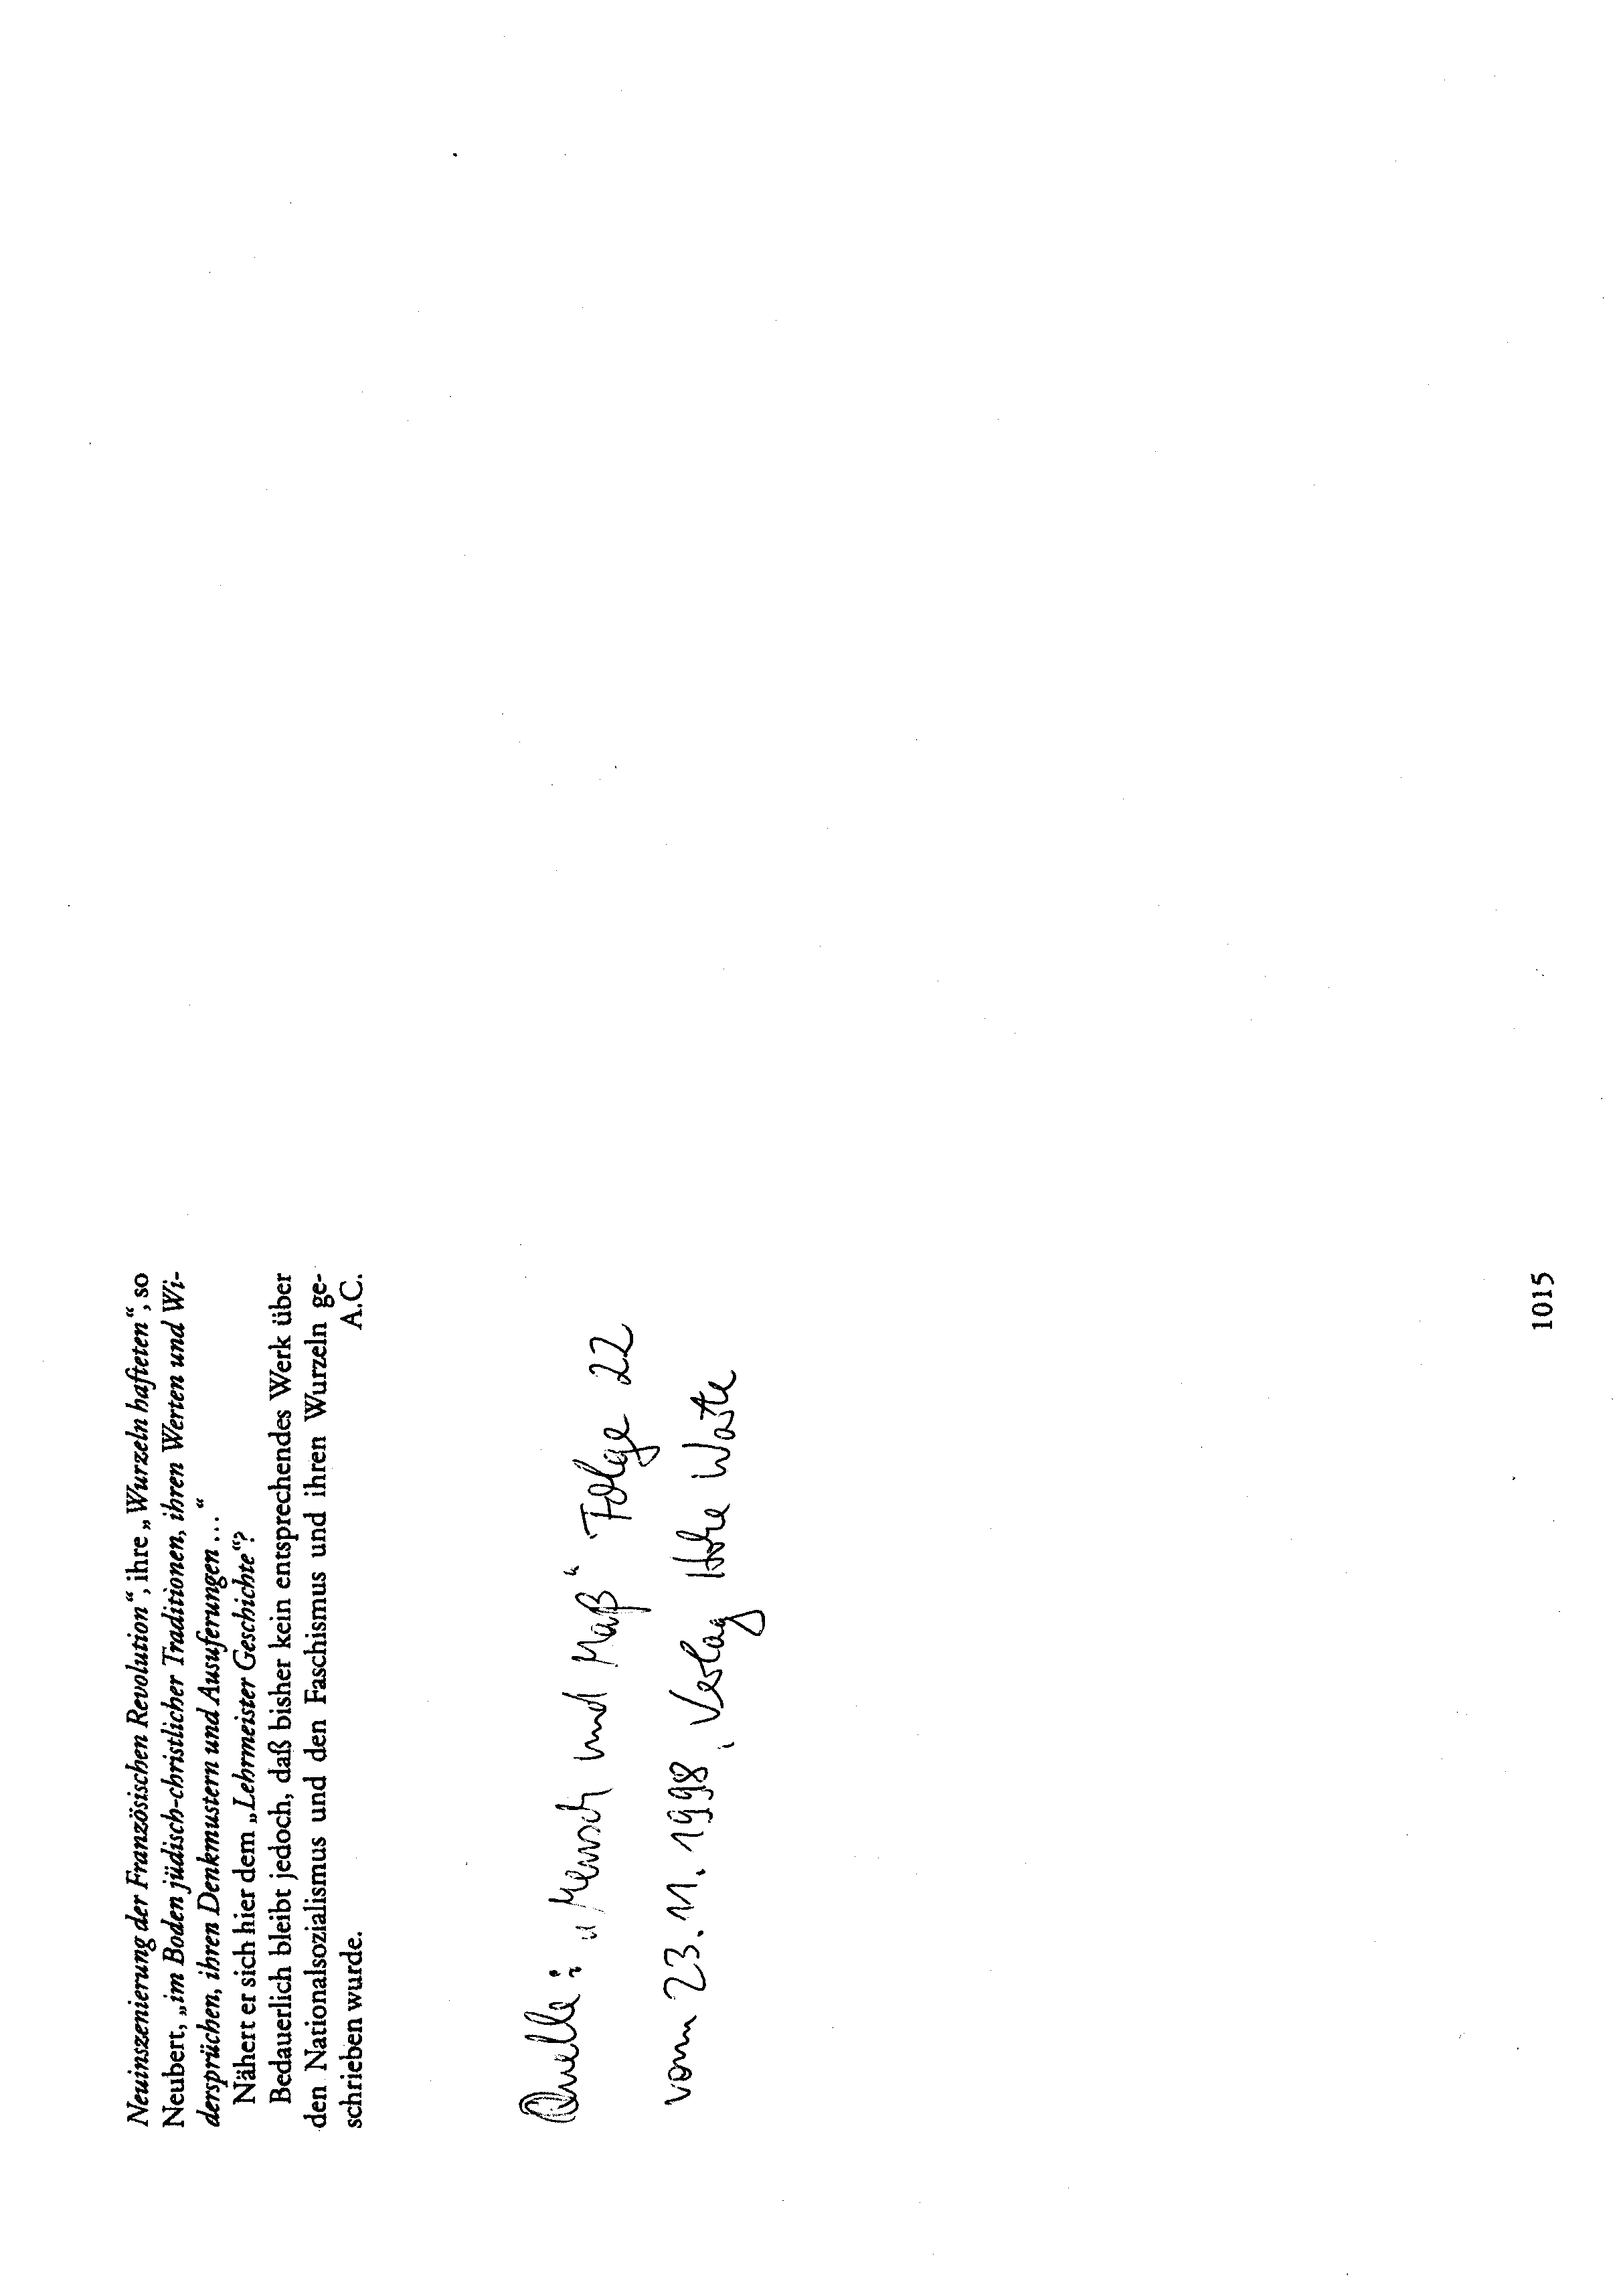 Neuinszenierung der Französischen Revolution“, ihre „Wurzeln hafteten“, so
Neubert, „im Boden jüdisch-christlicher Traditionen, ihren Werten und Wi-
dersprüchen, ihren Denkmustern und Ausuferungen …“
Nähert er sich hier dem „Lehrmeister Geschichte“?
Bedauerlich bleibt jedoch, daß bisher kein entsprechendes Werk über
den Nationalsozialismus und den Faschismus und ihren Wurzeln ge-
schrieben wurde. A.C.
Quelle: „Mensch und Maß“ Folge 22
vom 23.11.1998, Verlag Hohe Warte
1015